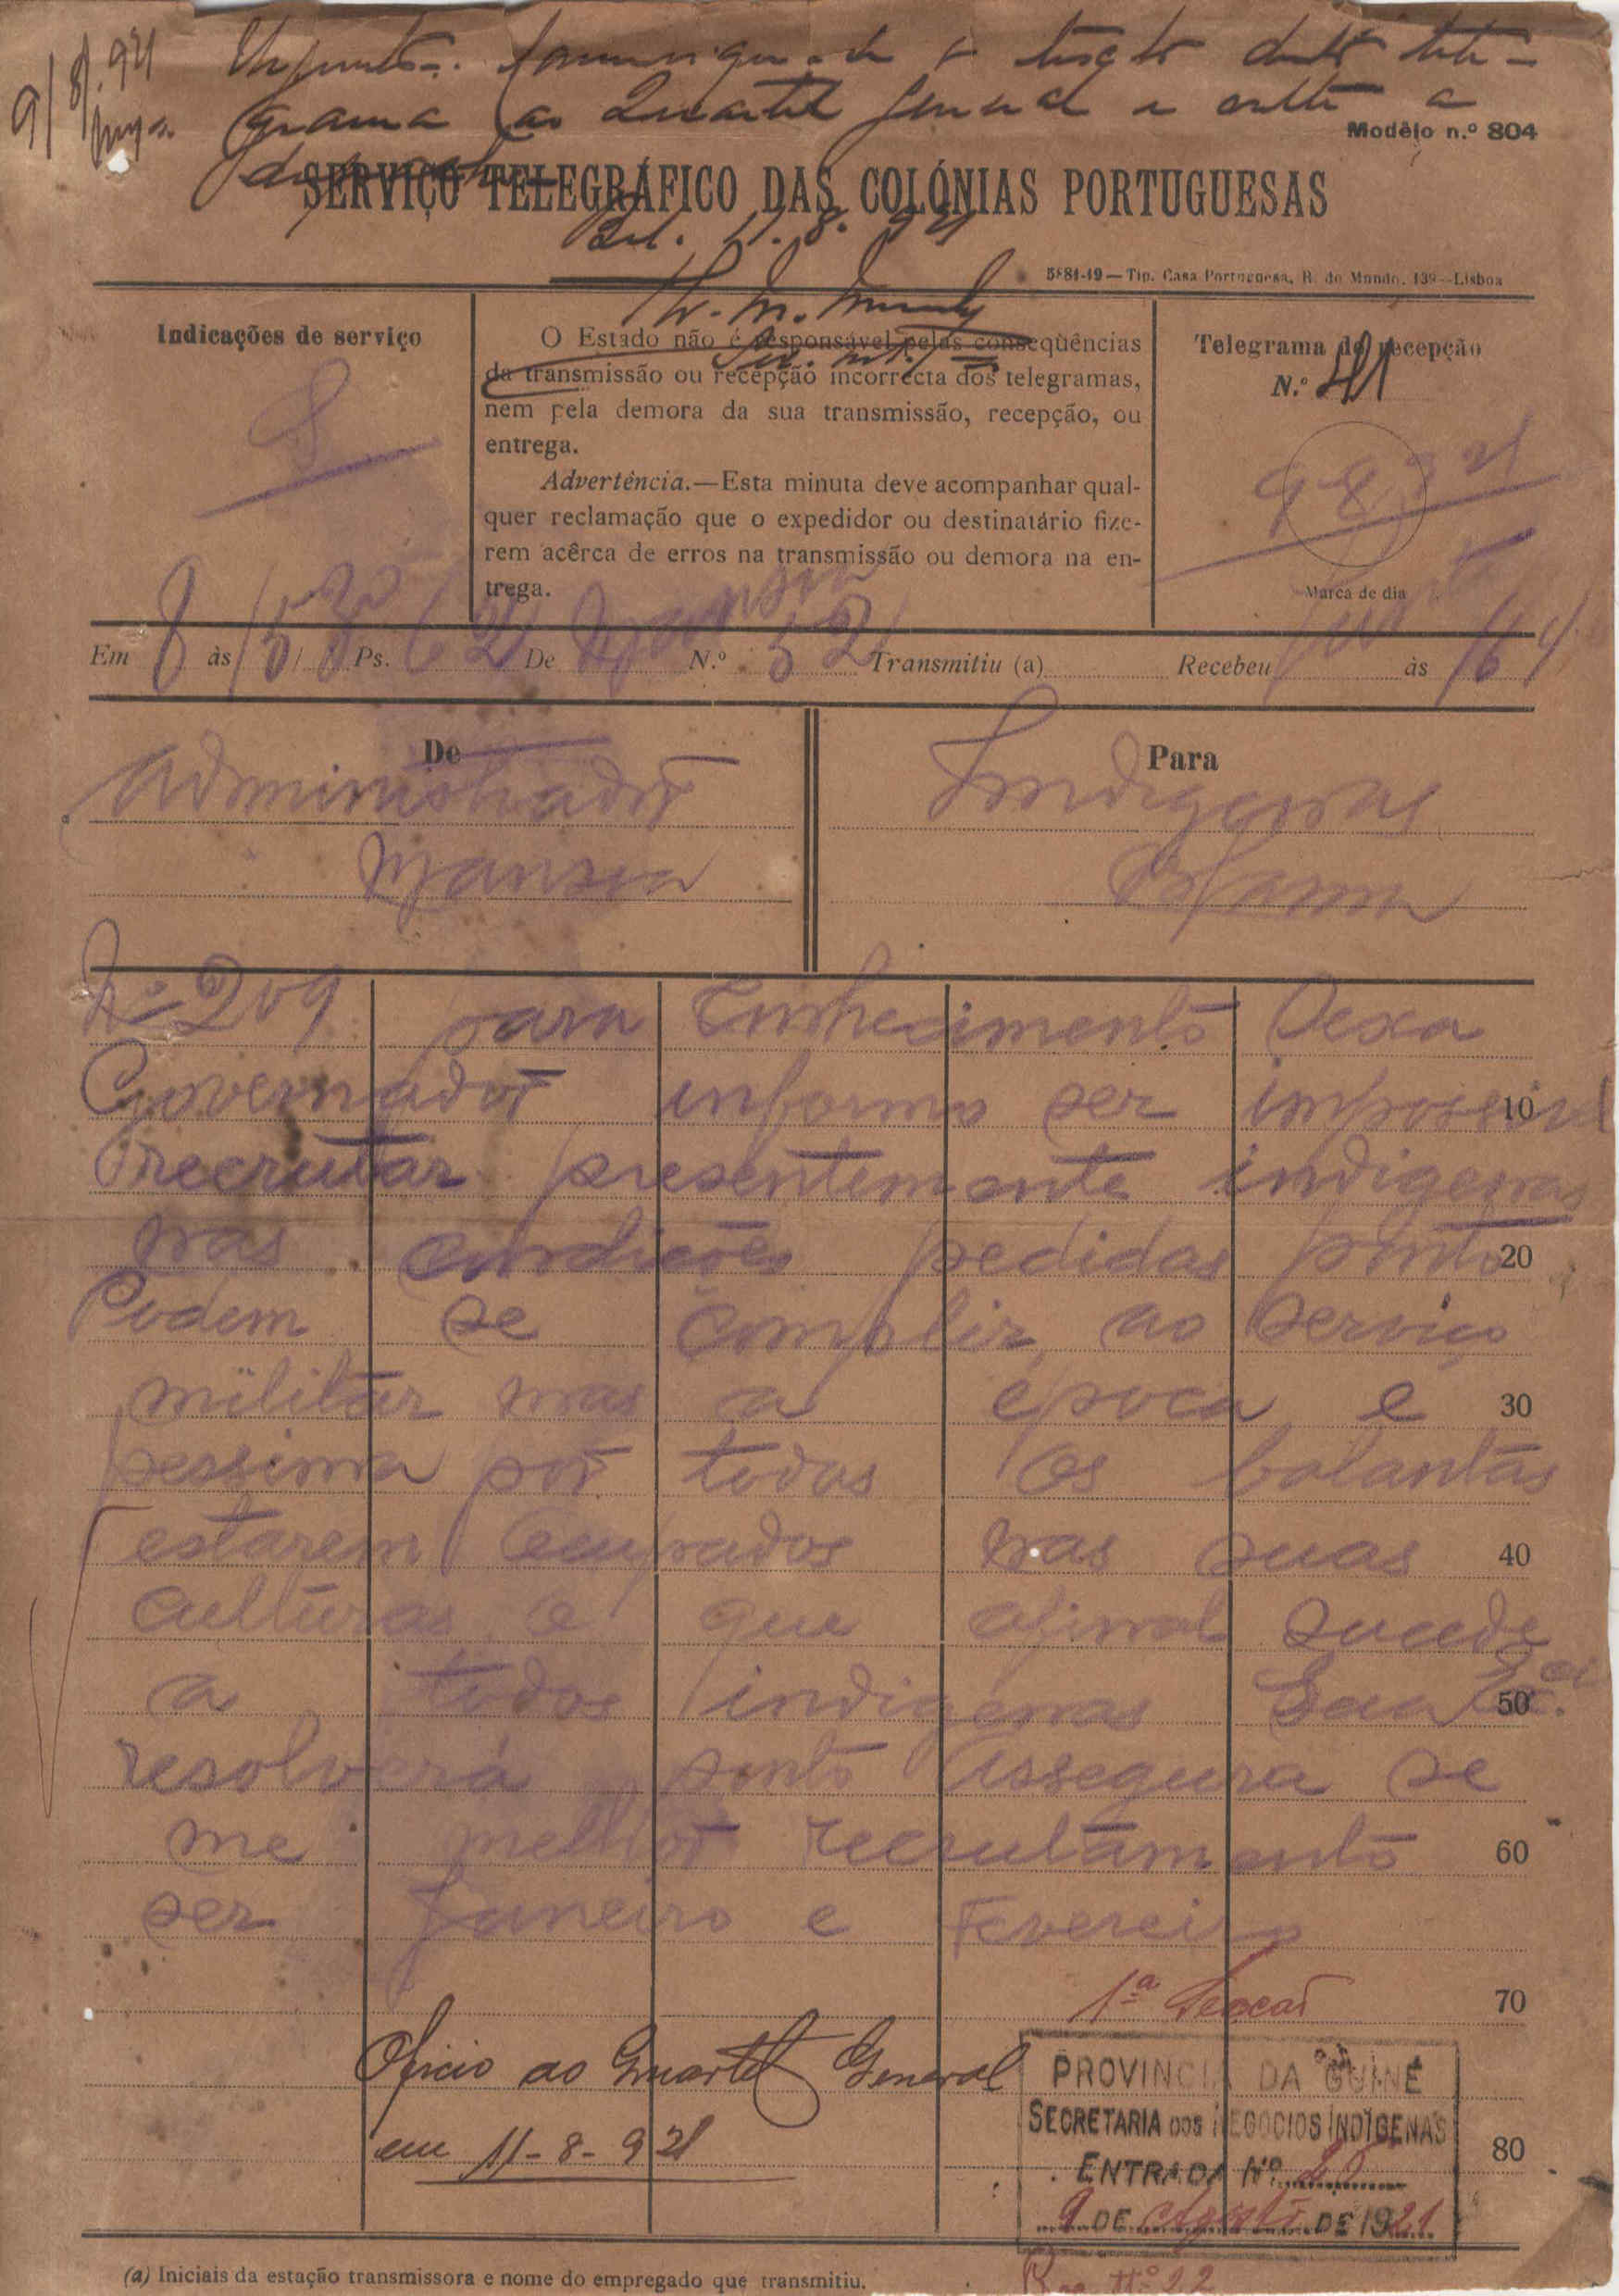 9/8/921
Urgente. Comunique-se o texto deste tele-
grama ao Quartel General e
Modêlo n.º 804
SERVIÇO TELEGRÁFICO DAS COLÓNIAS PORTUGUESAS
Bol. 11.8.921
5881-19 — Tip. Casa Portuguesa, R. do Mundo, 139 — Lisboa
Indicações de serviço
S
O Estado não é responsável pelas conseqüências
da transmissão ou recepção incorrecta dos telegramas,
nem pela demora da sua transmissão, recepção, ou
entrega.
Advertência.—Esta minuta deve acompanhar qual-
quer reclamação que o expedidor ou destinatário fize-
rem acêrca de erros na transmissão ou demora na en-
trega.
Telegrama de recepção
N.º
9 8 921
Marca de dia
Em 8 às 15/30 Ps. 62 De Mansoa N.º 52 Transmitiu (a) Recebeu às 16
De
Administrador
Mansoa
Para
Indigenas
Bolama
Nº 209 para Conhecimento Sexa
Governador informo ser impossivel
10
recrutar presentemente indigenas
nas condições pedidas ponto
20
Podem se compelir ao serviço
militar mas a epoca e
30
pessima por todos os balantas
estarem ocupados nas suas
40
culturas o que afinal sucede
a todos indigenas Sua Exª.
50
resolverá ponto Assegura se
me melhor recrutamento
60
ser Janeiro e Fevereiro
1ª Secção
70
Oficio ao Quartel General
em 11-8-921
PROVINCIA DA GUINÉ
SECRETARIA DOS NEGOCIOS INDIGENAS
80
ENTRADA Nº
9 DE Agosto DE 1921
(a) Iniciais da estação transmissora e nome do empregado que transmitiu.
Nº 22